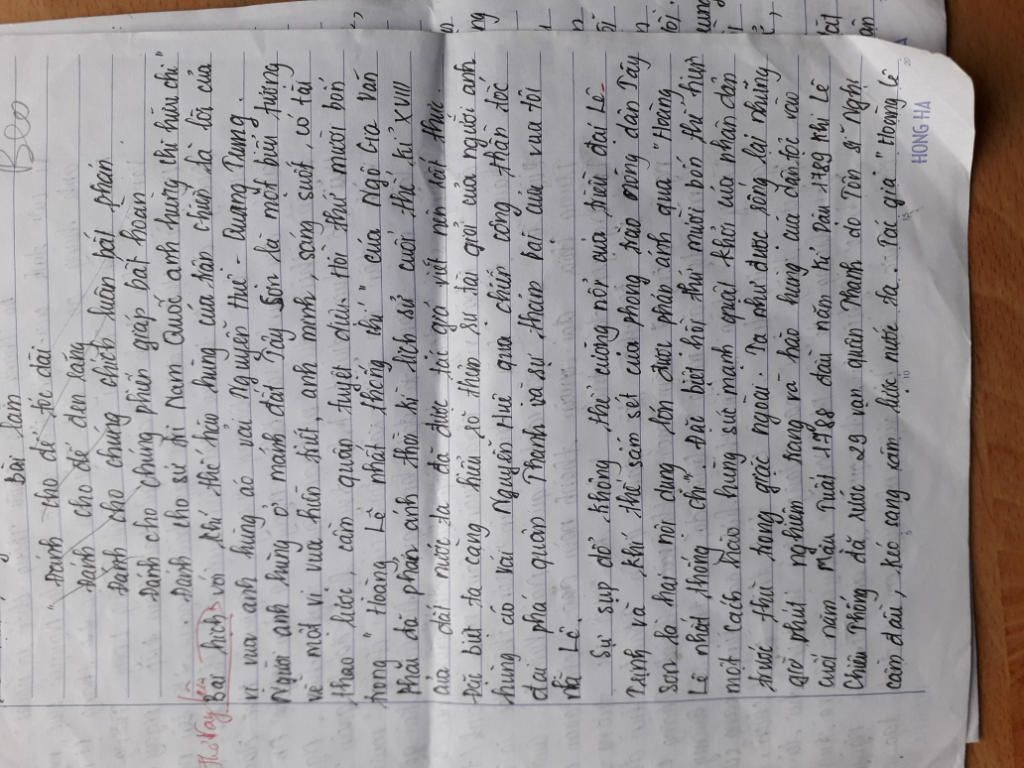 Bài làm
"Đánh cho để tóc dài
Đánh cho để đen răng
Đánh cho chúng chích luân bất phản
Đánh cho chúng phiến giáp bất hoàn
Đánh cho sử tri Nam Quốc anh hùng chi hữu chủ"
Bài hịch với khí thế hào hùng của trận chiến là lời của
vị vua anh hùng áo vải Nguyễn Huệ - Quang Trung.
Người anh hùng ở mảnh đất Tây Sơn là một biểu tượng
về một vị vua hiền triết, anh minh, sáng suốt, có tài
thao lược cầm quân tuyệt diệu. Hồi thứ mười bốn
trong "Hoàng Lê nhất thống chí" của Ngô Gia Văn
Phái đã phản ánh thời kì lịch sử cuối thế kỉ XVIII
của đất nước ta đã được tác giả viết nên rất thực.
Đọc bút ta càng hiểu rõ thêm sự tài giỏi của người anh
hùng áo vải Nguyễn Huệ qua chiến công thần tốc
đại phá quân Thanh và sự thảm bại của vua tôi
nhà Lê.
Sự sụp đổ không thể cưỡng nổi của triều đại Lê
Trịnh và khí thế sấm sét của phong trào nông dân Tây
Sơn là hai nội dung lớn được phản ánh qua "Hoàng
Lê nhất thống chí". Đặc biệt hồi thứ mười bốn thể hiện
một cách hào hùng sức mạnh quật khởi của nhân dân
trước thù trong giặc ngoài. Ta như được sống lại những
giờ phút nghiêm trang và hào hùng của dân tôi vào
cuối năm Mậu Tuất 1788 đầu năm Kỉ Dậu 1789 khi Lê
Chiêu Thống đã rước 29 vạn quân Thanh do Tôn Sĩ Nghị
cầm đầu, kéo sang xâm lược nước ta. Tác giả "Hoàng Lê
HONG HA